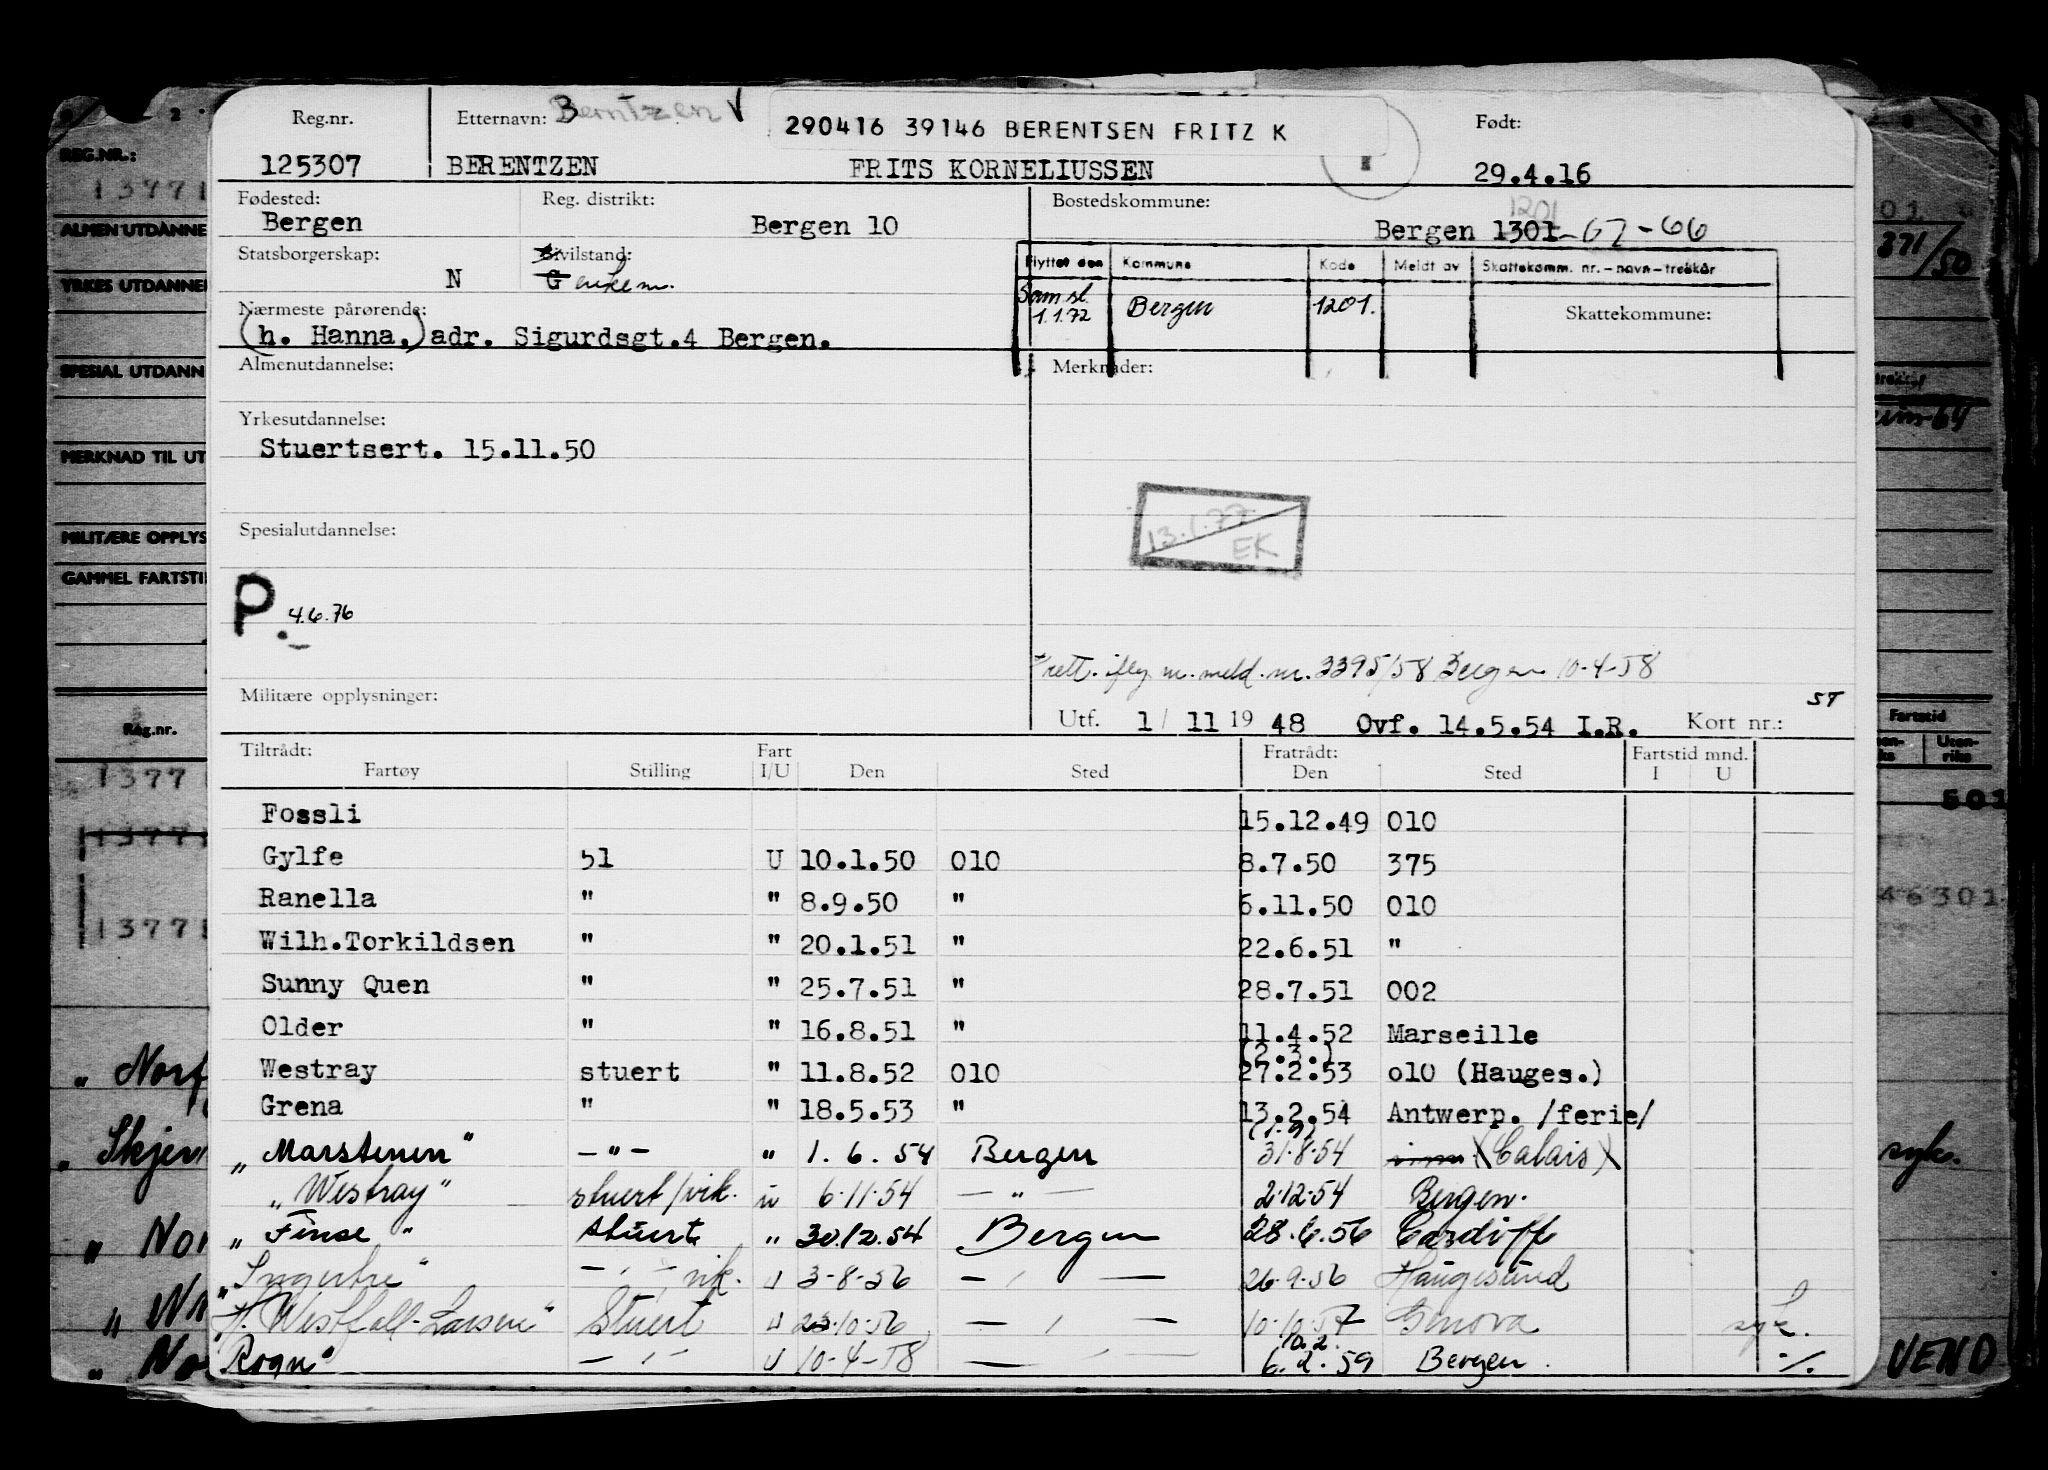 Reg.nr. Etternavn: Berntzen V 290416 39146 BERENTSEN FRITZ K Født:
125307 BERENTZEN FRITS KORNELIUSSEN 29.4.16
Fødested: Reg. distrikt: Bostedskommune: 1201
Bergen Bergen 10 Bergen 1301-67-66
Statsborgerskap: Sivilstand: Flyttet den Kommune Kode Meldt av Skattekomm. nr.-navn-trekkår
N G enkem.
Nærmeste pårørende: Sam sl. 1.1.72 Bergen 1201. Skattekommune:
(h. Hanna,) adr. Sigurdsgt.4 Bergen.
Almenutdannelse: Merknader:
Yrkesutdannelse:
Stuertsert. 15.11.50
13.1.77 EK
Spesialutdannelse:
P. 4.6.76
rett. iflg m. meld. nr. 3395/58 Bergen 10-4-58
Militære opplysninger: ST
Utf. 1/ 11 19 48 Ovf. 14.5.54 I.R. Kort nr.:
Tiltrådt: Fart Fratrådt: Fartstid mnd.
Fartøy Stilling I/U Den Sted Den Sted I U
Fossli 15.12.49 010
Gylfe 51 U 10.1.50 010 8.7.50 375
Ranella " " 8.9.50 " 6.11.50 010
Wilh.Torkildsen " " 20.1.51 " 22.6.51 "
Sunny Quen " " 25.7.51 " 28.7.51 002
Older " " 16.8.51 " 11.4.52 Marseille
(2.3.)
Westray stuert " 11.8.52 010 27.2.53 o10 (Hauges.)
Grena " " 18.5.53 " 13.2.54 Antwerp. /ferie/
(1.9)
"Marstenen" -"- " 1.6.54 Bergen 31.8.54 (Calais)
"Westray" stuert/vik. u 6.11.54 -"- 2.12.54 Bergen.
"Finse" stuert " 30.12.54 Bergen 28.6.56 Cardiff
"Ingertre" -"- vik. u 3-8-56 -"- 26.9.56 Haugesund
"H. Westfall-Larsen" Stuert u 23.10.56 -"- 10.10.57 Genova syk.
10.2.
"Rogn" -"- u 10-4-58 -"- 6.2.59 Bergen. ./.
REG.NR.:
13771
ALMEN UTDANNE
YRKES UTDANNE
SPESIAL UTDANN
MERKNAD TIL UT
MILITÆRE OPPLYS
GAMMEL FARTSTI
Reg.nr.
13771
13771
13771
" Norf
" Skjer
" Nor
" No
371/50
Fartstid
Uten-
riks
501
46301
syk.
VEND